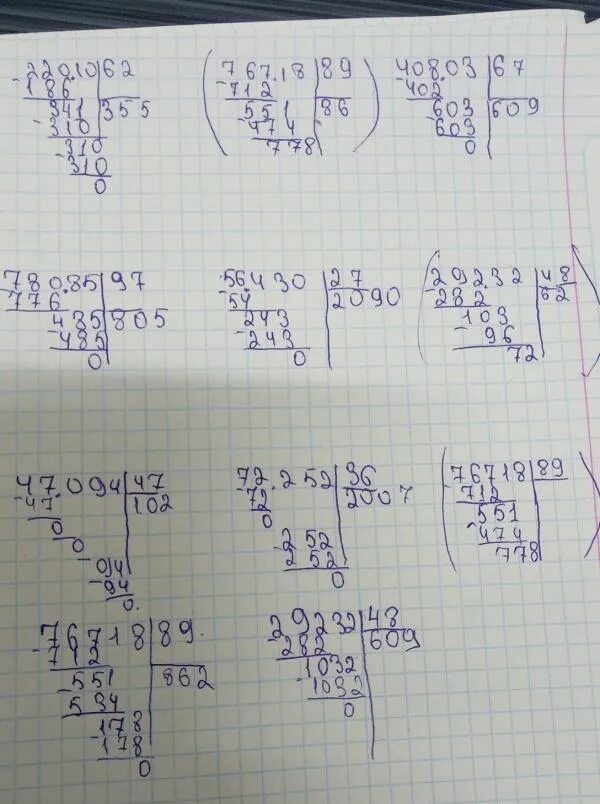 220.10 62
- 186 355
341
- 310
310
- 310
0
( 767.18 89 )
- 712 86
551
- 474
778
408.03 67
- 402 609
603
- 603
0
780.85 97
- 776 805
485
- 485
0
56.430 27
- 54 2090
243
- 243
0
( 292.32 48 )
- 282 62
103
- 96
72
47.094 47
- 47 102
0
0
- 094
- 94
0.
72.252 36
- 72 2007
0
252
- 252
0
( 76718 89
- 712
551
- 474
778
76718 89.
- 712 862
551
- 534
178
- 178
0
29232 48
- 282 609
1032
- 1032
0